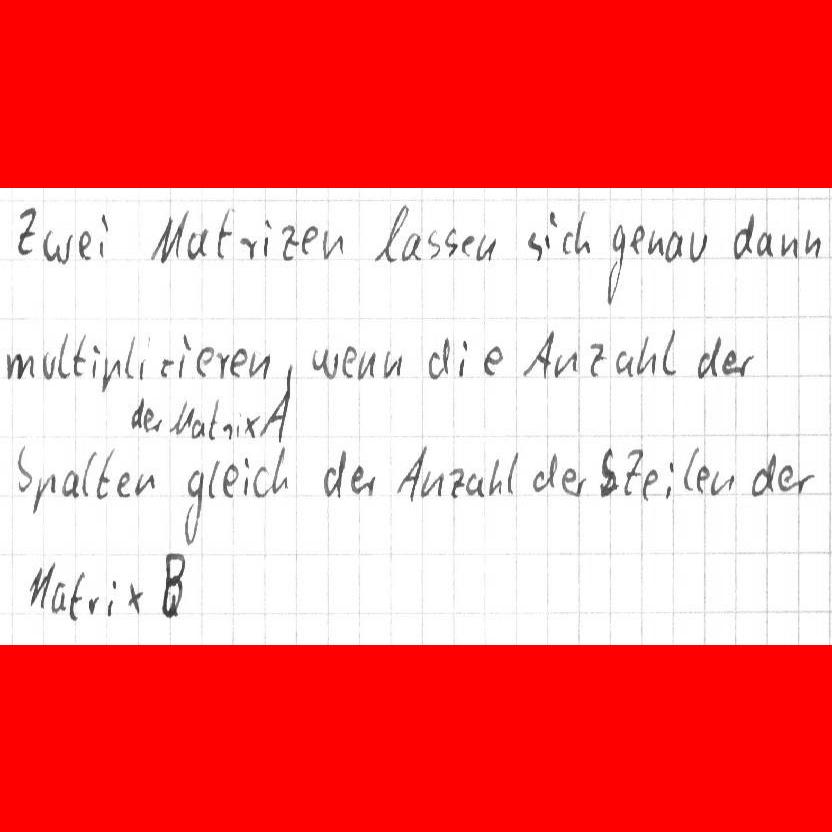 Zwei Matrizen lassen sich genau dann
multiplizieren, wenn die Anzahl der
der Matrix A
Spalten gleich der Anzahl der Zeilen der
Matrix B